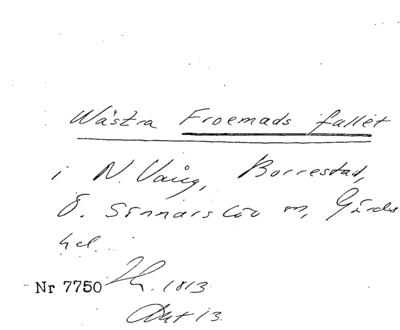 Wästra Froemads fallet
i N. Vång, Borrestad,
Ö. Sönnarslöv m, Gärds
hd.
Nr 7750 Jh. 1813
Akt 13.